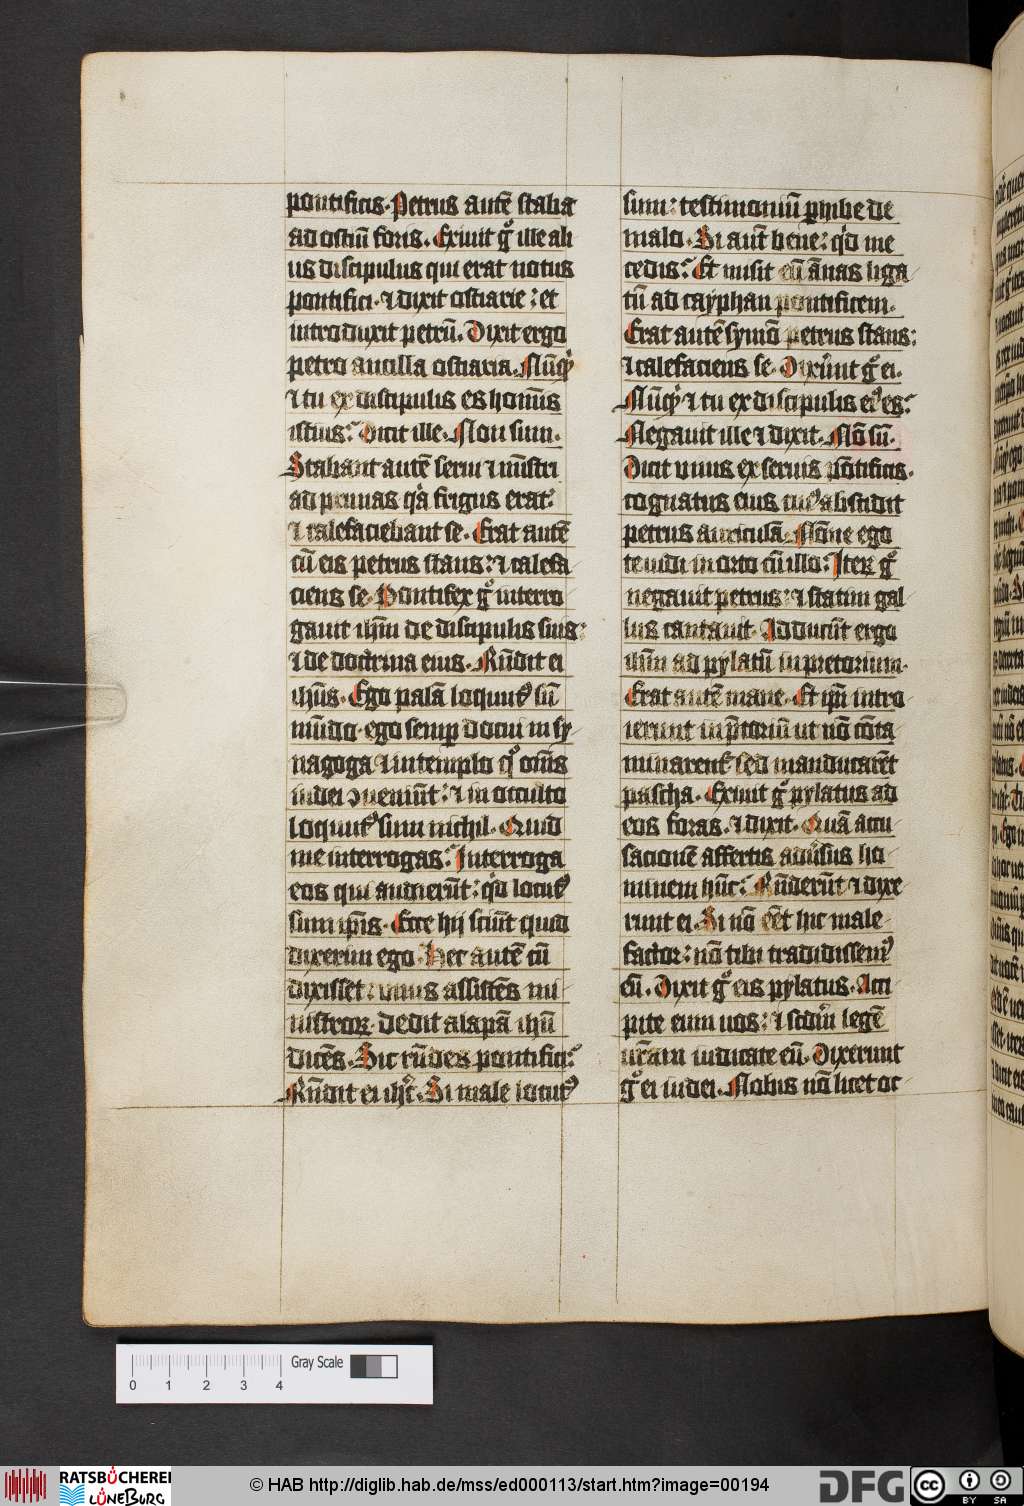 pontificis. Petrus autē staba
ad ostiū foris. Exiuit gͦ ille ali
us discipulus qui erat notus
pontifici. ⁊ dixit ostiarie: et
introduxit petrū. Dixit ergo
petro ancilla ostiaria. Nūqͥd
⁊ tu ex discipulis es hoīnis
istius: Dicit ille. Non sum.
Stabant autē serui ⁊ mīstri
ad prunas qͣ frigus erat:
⁊ calefaciebant se. Erat autē
cū eis petrus stans: ⁊ calefa
ciens se. Pontifex gͦ interro
gauit ihm̄ de discipulis suis:
⁊ de doctͥna eius. Rn̄dit ei
ihūs. Ego palā locutꝰ sū
mūdo. ego semꝑ docui in sy
nagoga ⁊ in templo qͦ om̄s
iudei ꝯueniūt: ⁊ in occulto
locutꝰ sum nichil. Quid
me interrogas: Interroga
eos qui audierūt: qͥd locutꝰ
sum ip̄is. Ecce hij sciūt quid
dixerim ego. Hec autē cū
dixisset: unus assistēs mi
nistroꝝ dedit alapā ihū
dicēs. Sic rn̄des pontifici:
Rn̄dit ei ihc̄. Si male locutꝰ
sum: testimoniū ꝑhibe de
malo. Si aut̄ bene: qͥd me
cedis: Et misit eū ānas liga
tū ad cayphan pontificem.
Erat autē symō petrus stans:
⁊ calefaciens se. Dixer̄unt gͦ ei.
Nūqͥd ⁊ tu ex discipulis eiꝰ es:
Negauit ille ⁊ dixit. Nō sū.
Dicit unus ex seruis pōtificis.
cognatus eius cuiꝰ abscidit
petrus auriculā. Nōne ego
te uidi in orto cū illo: Iteꝝ gͦ
negauit petrus: ⁊ statim gal
lus cantauit. Adducūt ergo
ihm̄ ad pylatū in pretorium.
Erat autē mane. Et ip̄i intro
ierunt in p̄toriū ut nō cōta
minarent᷑ sed manducarēt
pascha. Exiuit gͦ pylatus ad
eos foras. ⁊ dixit. Quā accu
sacionē affertis adūsus ho
minem hūc: Rn̄derūt ⁊ dixe
runt ei. Si nō eēt hic male
factor: nō tibi tradidissemꝰ
eū. Dixit gͦ eis pylatus. Acci
pite eum uos: ⁊ scd̄m legē
ur̄am iudicate eū. Dixerunt
gͦ ei iudei. Nobis nō licet oc
Gray Scale
0 1 2 3 4
RATSBÜCHEREI
LÜNEBURG
© HAB http://diglib.hab.de/mss/ed000113/start.htm?image=00194
DFG
cc
BY SA